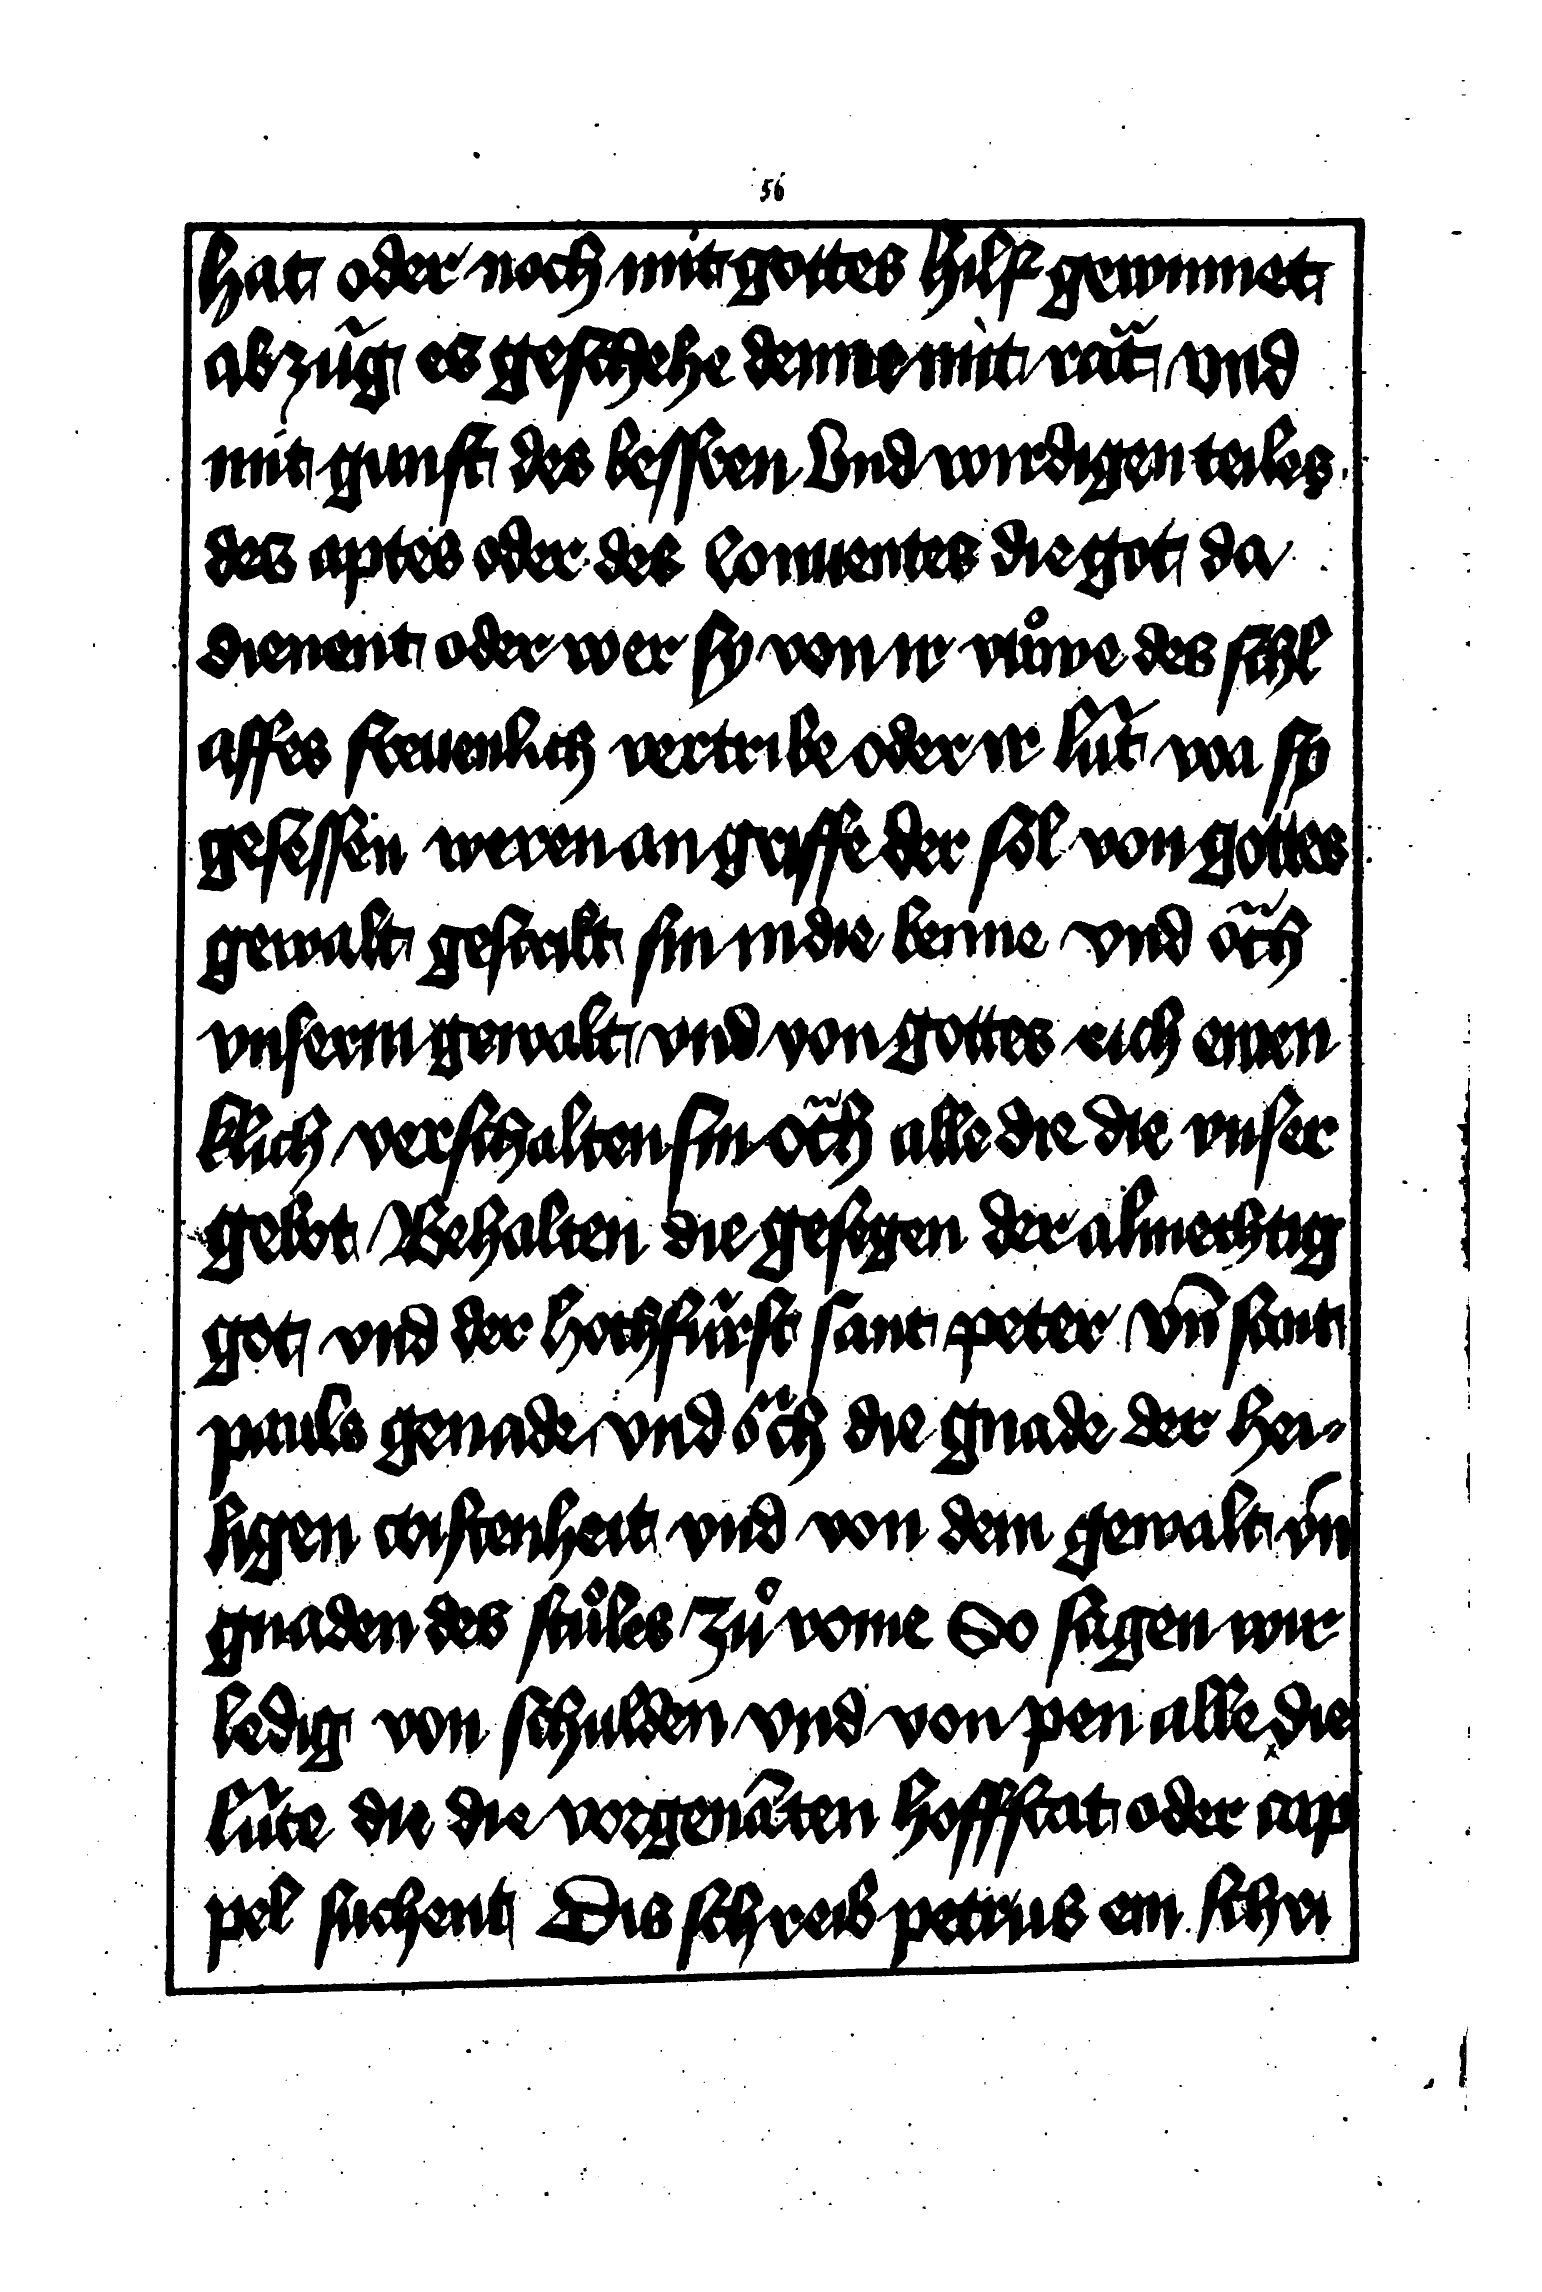 56
hat oder noch mit gottes hilf gewinnet
abzug es geschehe denne mit rät vnd
mit gunst des bessren Vnd wirdigen teiles
des aptes oder des Conuentes die got da
dienent oder wer sy von ir růwe des schl
affes freuenlich vertribe oder ir lüt wa sy
gesessen weren an griffe der sol von gottes
gewalt gestrikt sin in die benne vnd öch
vnserm gewalt vnd von gottes rich ewen
klich verschalten sin öch alle die die vnser
gebot Behalten die gesegen der almechtig
got vnd der hochfürst sant peter vn̄ sant
pauls genade vnd öch die gnade der hei-
ligen cristenheit vnd von dem gewalt vn̄
gnaden des stůles Zů rome So sagen wir
ledig von schulden vnd von pen alle die
lüte die die vorgenāten hoffstat oder cap
pel suchent Dis schreib petrus ein schri